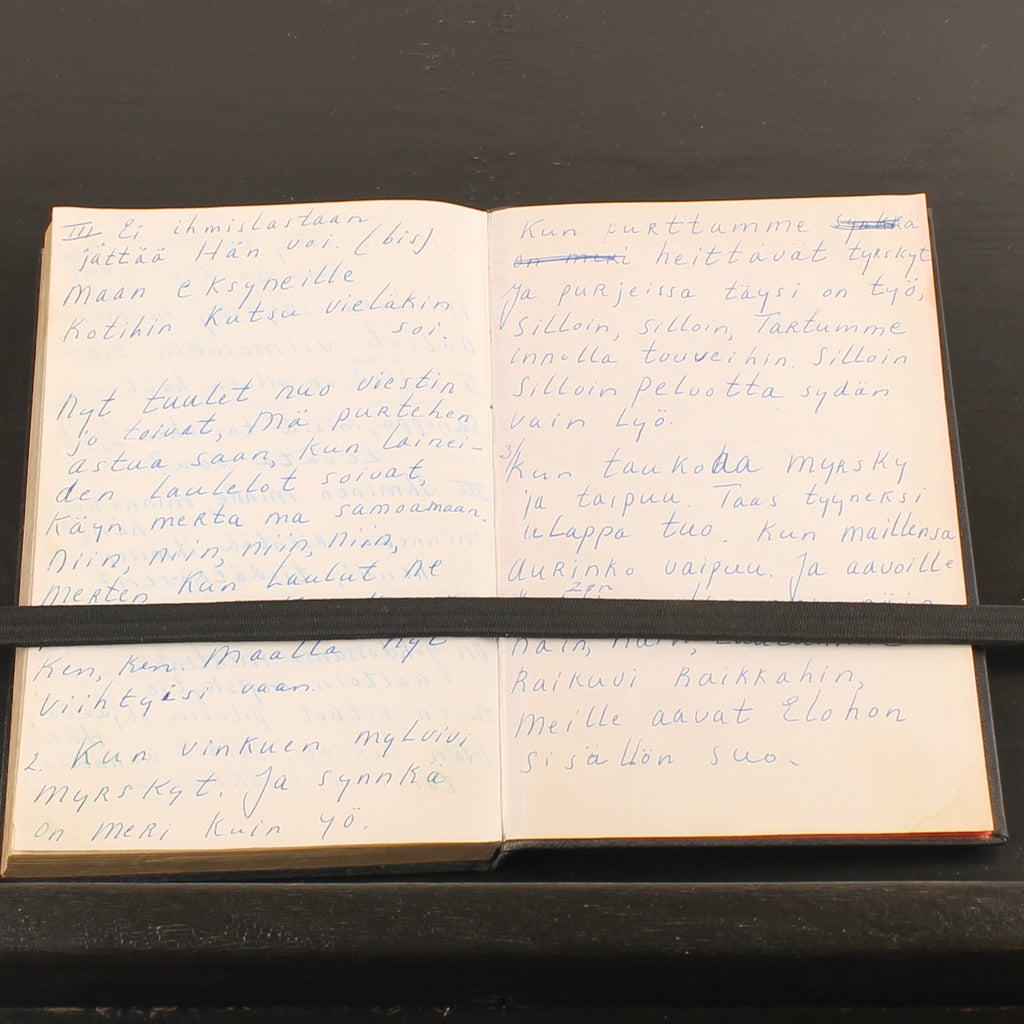 III Ei ihmislastaan
jättää Hän voi. (bis)
Maan eksyneille
Kotihin kutsu vieläkin
soi.
Nyt tuulet nuo viestin
jo toivat, Mä purtehen
astua saan, kun lainei-
den laulelot soivat,
Käyn merta ma samoamaan.
Niin, niin, niin, niin,
Merten kun laulut ne
ken, ken. Maalla nyt
viihtyisi vaan.
2. Kun vinkuen mylvivi
myrskyt. Ja synnkä
on meri kuin yö.
Kun purttamme synkkä
on meri heittävät tyrskyt
Ja purjeissa täysi on työ,
Silloin, silloin, Tartumme
innolla touveihin. Silloin
Silloin peluotta sydän
vain lyö.
3/ Kun taukoaa myrsky
ja taipuu. Taas tyyneksi
ulappa tuo. Kun maillensa
aurinko vaipuu. Ja aavoille
Raikuvi Raikkahin,
Meille aavat Elohon
sisällön suo.